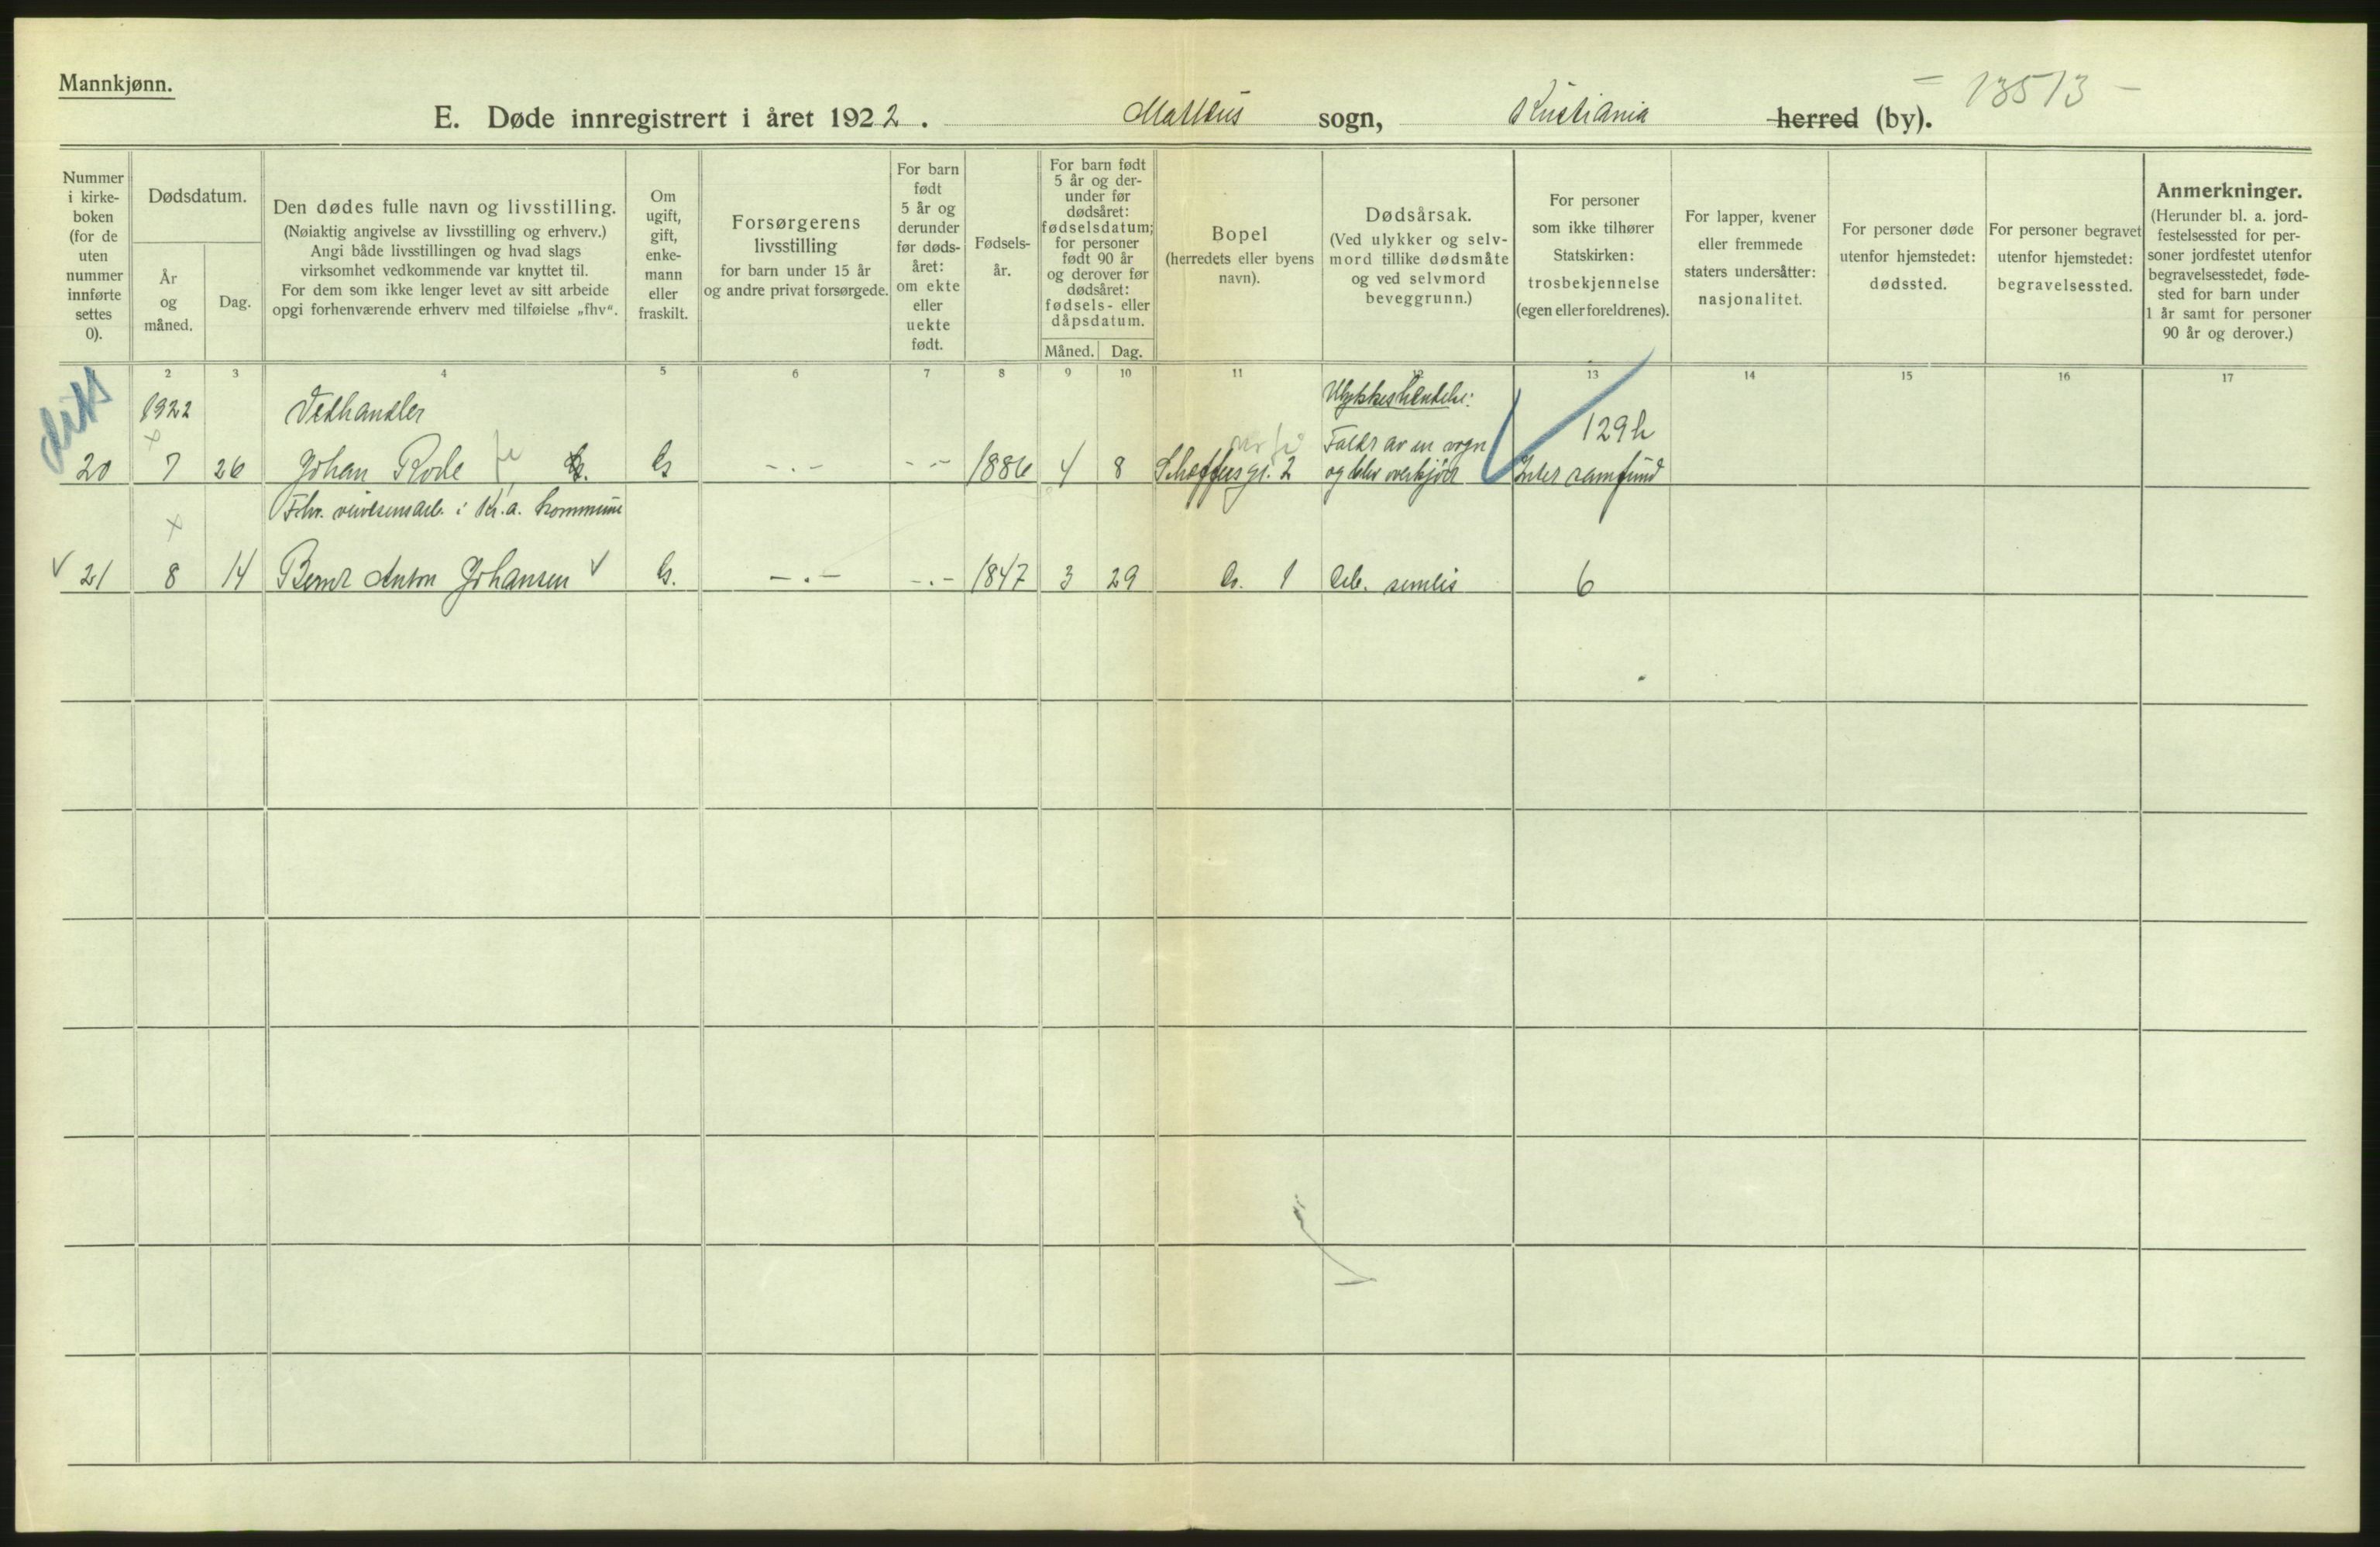 Mannkjønn.
= 13513 -
E. Døde innregistrert i året 1922. Matteus sogn, Kristiania herred (by).
Nummer
i kirke-
boken
(for de
uten
nummer
innførte
settes
0).
Dødsdatum.
År
og
måned.
Dag.
Den dødes fulle navn og livsstilling.
(Nøiaktig angivelse av livsstilling og erhverv.)
Angi både livsstillingen og hvad slags
virksomhet vedkommende var knyttet til.
For dem som ikke lenger levet av sitt arbeide
opgi forhenværende erhverv med tilføielse „fhv“.
Om
ugift,
gift,
enke-
mann
eller
fraskilt.
Forsørgerens
livsstilling
for barn under 15 år
og andre privat forsørgede.
For barn
født
5 år og
derunder
før døds-
året:
om ekte
eller
uekte
født.
Fødsels-
år.
For barn født
5 år og der-
under før
dødsåret:
fødselsdatum;
for personer
født 90 år
og derover før
dødsåret:
fødsels- eller
dåpsdatum.
Måned. Dag.
Bopel
(herredets eller byens
navn).
Dødsårsak.
(Ved ulykker og selv-
mord tillike dødsmåte
og ved selvmord
beveggrunn.)
For personer
som ikke tilhører
Statskirken:
trosbekjennelse
(egen eller foreldrenes).
For lapper, kvener
eller fremmede
staters undersåtter:
nasjonalitet.
For personer døde
utenfor hjemstedet:
dødssted.
For personer begravet
utenfor hjemstedet:
begravelsessted.
Anmerkninger.
(Herunder bl. a. jord-
festelsessted for per-
soner jordfestet utenfor
begravelsesstedet, føde-
sted for barn under
1 år samt for personer
90 år og derover.)
2 3 4 5 6 7 8 9 10 11 12 13 14 15 16 17
1922 Vedhandler Ulykkeshendelse: 129 h
Faldt av en vogn
20 7 26 Johan Rode G -.- -- 1886 4 8 Schoffusgt. 2 og blev overkjørt samfund
Fhv. veivesensarb. i Kr.a. kommune
21 8 14 Bernt Anton Johansen G. -.- -.- 1847 3 29 1 senilis 6